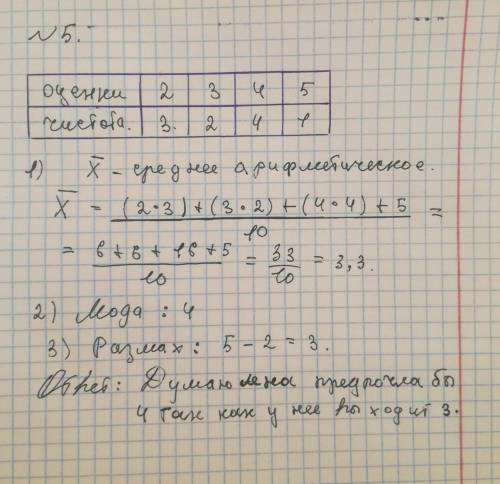 №5.
оценки 2 3 4 5
чистота. 3. 2 4 1
1) X̅ - среднее арифметическое.
X̅ = (2·3)+(3·2)+(4·4)+5 / 10 =
= 6+6+16+5 / 10 = 33/10 = 3,3.
2) Мода : 4
3) Размах : 5 - 2 = 3.
Ответ: Думаю Лена предпочла бы
4 так как у нее выходит 3.